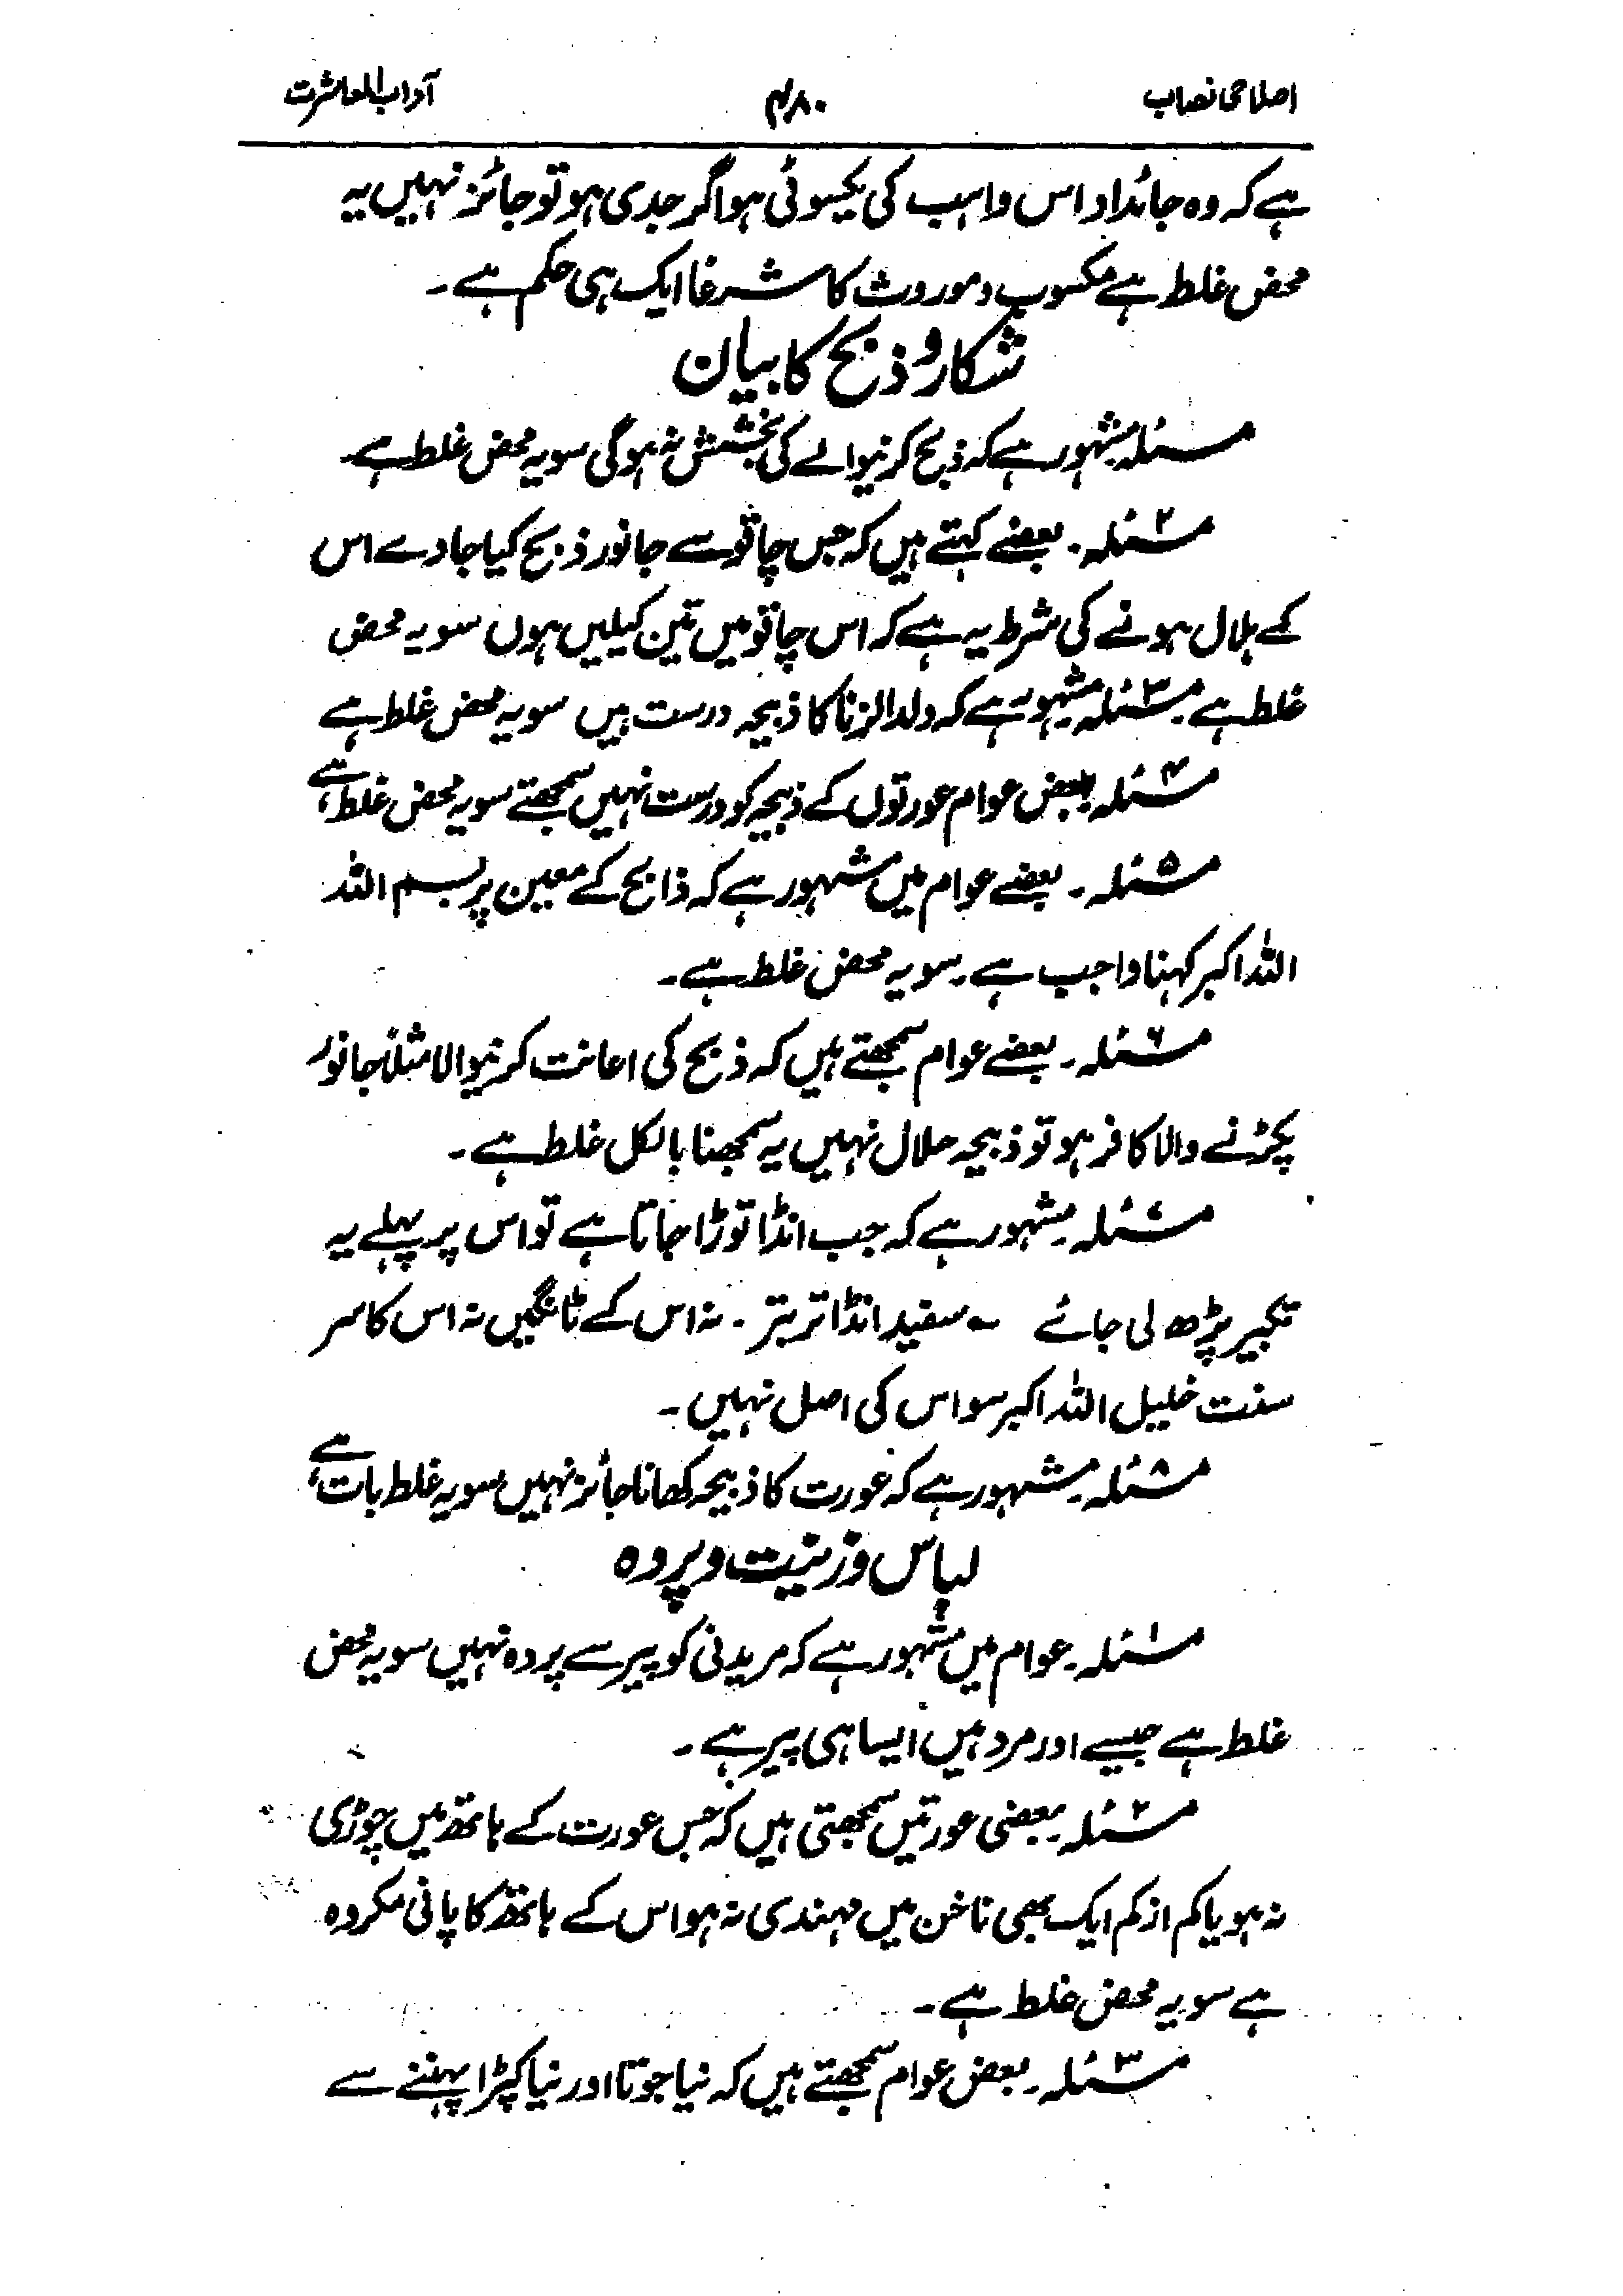 اصلاحی نصاب ۴۸۰ آداب المعاشرت
ہے کہ وہ جائداد اس واہب کی یکسوئی ہو اگر جدی ہو تو جائز نہیں یہ
محض غلط ہے مکسوب و موروث کا شرعًا ایک ہی حکم ہے۔
شکار و ذبح کا بیان
مسئلہ مشہور ہے کہ ذبح کرنیوالے کی بخشش نہ ہوگی سو یہ محض غلط ہے۔
مسئلہ۲۔ بعضے کہتے ہیں کہ جس چاقو سے جانور ذبح کیا جاوے اس
کے ہلال ہونے کی شرط یہ ہے کہ اس چاقو میں تین کیلیں ہوں سو یہ محض
غلط ہے۔ مسئلہ۳ مشہور ہے کہ ولد الزنا کا ذبیحہ درست ہیں سو یہ محض غلط ہے
مسئلہ۴ بعض عوام عورتوں کے ذبیحہ کو درست نہیں سمجھتے سو یہ محض غلط ہے
مسئلہ۵۔ بعضے عوام میں مشہور ہے کہ ذابح کے معین پر بسم اللہ
اللہ اکبر کہنا واجب ہے۔ سو یہ محض غلط ہے۔
مسئلہ۶۔ بعضے عوام سمجھتے ہیں کہ ذبح کی اعانت کرنیوالا مثلاً جانور
پکڑنے والا کافر ہو تو ذبیحہ حلال نہیں یہ سمجھنا بالکل غلط ہے۔
مسئلہ۷۔ مشہور ہے کہ جب انڈا توڑا جاتا ہے تو اس پر پہلے یہ
تکبیر پڑھ لی جائے ؎ سفید انڈا تر بتر۔ نہ اس کے ٹانگیں نہ اس کا سر
سنت خلیل اللہ اکبر سو اس کی اصل نہیں۔
مسئلہ۸۔ مشہور ہے کہ عورت کا ذبیحہ کھانا جائز نہیں سو یہ غلط بات ہے
لباس و زینت و پردہ
مسئلہ۱۔ عوام میں مشہور ہے کہ مریدنی کو پیر سے پردہ نہیں سو یہ محض
غلط ہے جیسے اور مرد ہیں ایسا ہی پیر ہے۔
مسئلہ۲۔ بعضی عورتیں سمجھتی ہیں کہ جس عورت کے ہاتھ میں چوڑی
نہ ہو یا کم از کم ایک بھی ناخن میں مہندی نہ ہو اس کے ہاتھ کا پانی مکروہ
ہے سو یہ محض غلط ہے۔
مسئلہ۳۔ بعض عوام سمجھتے ہیں کہ نیا جوتا اور نیا کپڑا پہننے سے